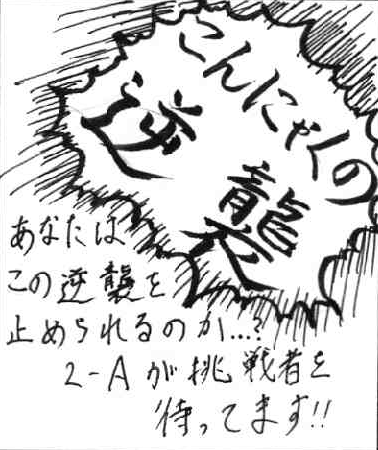 こんにゃくの
逆襲
あなたは
この逆襲を
止められるのか...?
2-Aが挑戦者を
待ってます!!